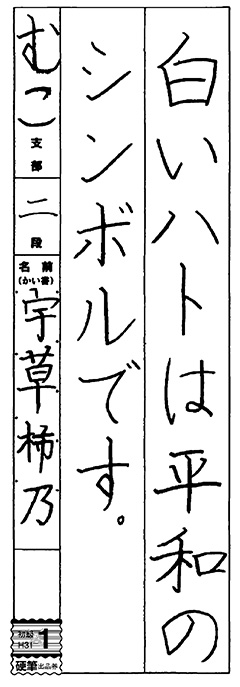 白いハトは平和の
シンボルです。
むこ支部
二段
名前
(かい書)
宇草柿乃
初級
H31
1
硬筆出品券